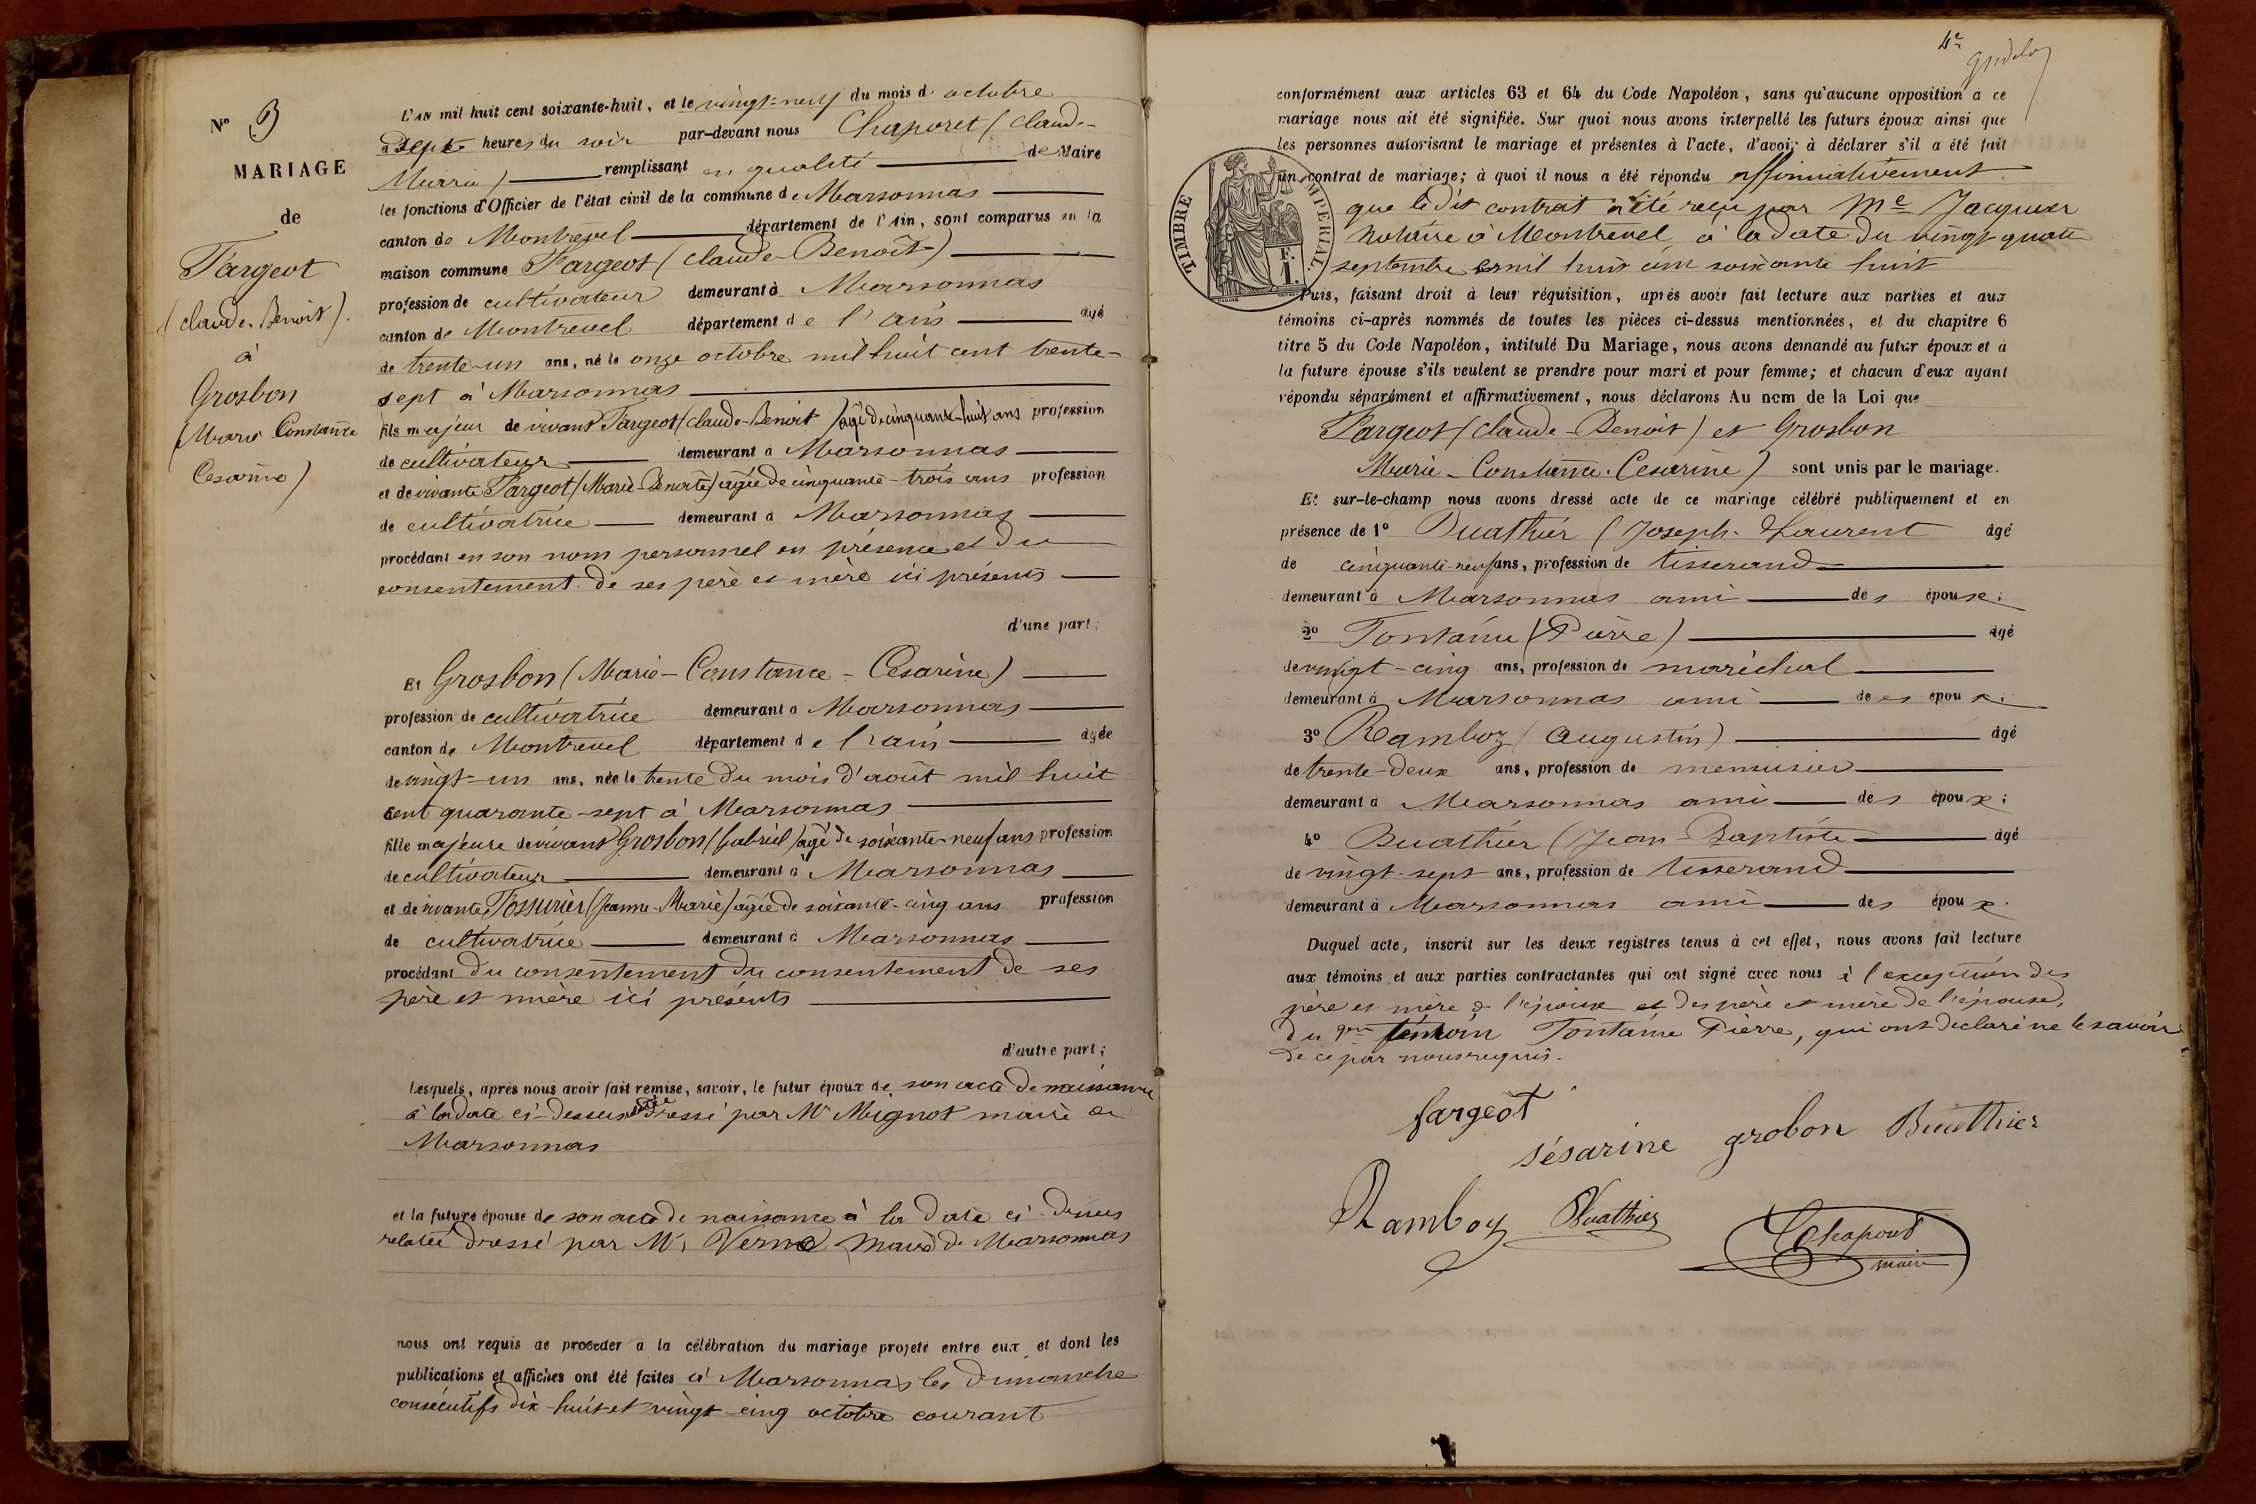 Nº 3
MARIAGE
de
Fargeot
(Claude-Benoit).
à
Grosbon
(Marie Constance
Cesarine)
L'AN mil huit cent soixante-huit, et le vingt-neuf du mois d. octobre
à sept heures du soir par-devant nous Chaporet (Claude-
Marie) remplissant en qualité de Maire
les fonctions d'Officier de l'état civil de la commune de Marsonnas
canton de Montrevel département de l'Ain, sont comparus en la
maison commune Fargeot (Claude-Benoit)
profession de cultivateur demeurant à Marsonnas
canton de Montrevel département de l'ain âgé
de trente-un ans, né le onze octobre mil huit cent trente-
sept à Marsonnas
fils majeur de vivant Fargeot (Claude-Benoit) âgé de cinquante-huit ans profession
de cultivateur demeurant à Marsonnas
et de vivante Fargeot (Marie-Benoite) âgée de cinquante-trois ans profession
de cultivatrice demeurant à Marsonnas
procédant en son nom personnel en présence et du
consentement de ses père et mère ici présents
d'une part;
Et Grosbon (Marie-Constance-Césarine)
profession de cultivatrice demeurant à Marsonnas
canton de Montrevel département de l'ain âgée
de vingt-un ans, née le trente du mois d'août mil huit
cent quarante-sept à Marsonnas
fille majeure de vivant Grosbon (Gabriel) âgé de soixante-neuf ans profession
de cultivateur demeurant à Marsonnas
et de vivante (Jeanne-Marie) âgée de soixante-cinq ans profession
de cultivatrice demeurant à Marsonnas
procédant du consentement du consentement de ses
père et mère ici présents
d'autre part;
Lesquels, après nous avoir fait remise, savoir, le futur époux de son acte de naissance
à la date ci-dessus relatée dressé par Mr Mignot maire de
Marsonnas
et la future épouse de son acte de naissance à la date ci-dessus
relatée dressé par Mr Verne maire de Marsonnas
nous ont requis de procéder à la célébration du mariage projeté entre eux, et dont les
publications et affiches ont été faites à Marsonnas les dimanche
consécutifs dix-huit et vingt-cinq octobre courant
4e
conformément aux articles 63 et 64 du Code Napoléon, sans qu'aucune opposition à ce
mariage nous ait été signifiée. Sur quoi nous avons interpellé les futurs époux ainsi que
les personnes autorisant le mariage et présentes à l'acte, d'avoir à déclarer s'il a été fait
un contrat de mariage; à quoi il nous a été répondu affirmativement
que le dit contrat a été reçu par Me Jacquier
notaire à Montrevel, à la date du vingt quatre
septembre mil huit cent soixante huit
TIMBRE IMPERIAL.
F.
1.
Puis, faisant droit à leur réquisition, après avoir fait lecture aux parties et aux
témoins ci-après nommés de toutes les pièces ci-dessus mentionnées, et du chapitre 6
titre 5 du Code Napoléon, intitulé Du Mariage, nous avons demandé au futur époux et à
la future épouse s'ils veulent se prendre pour mari et pour femme; et chacun d'eux ayant
répondu séparément et affirmativement, nous déclarons Au nom de la Loi que
Fargeot (Claude-Benoit) et Grosbon
Marie-Constance-Cesarine) sont unis par le mariage.
Et sur-le-champ nous avons dressé acte de ce mariage célébré publiquement et en
présence de 1º Buathier (Joseph-Laurent âgé
de cinquante-neuf ans, profession de tisserand
demeurant à Marsonnas ami des époux;
2º Fontaine (Pierre) âgé
de vingt-cinq ans, profession de maréchal
demeurant à Marsonnas ami des époux;
3º Ramboz (Augustin) âgé
de trente-deux ans, profession de menuisier
demeurant à Marsonnas ami des époux;
4º Buathier (Jean-Baptiste âgé
de vingt-sept ans, profession de tisserand
demeurant à Marsonnas ami des époux.
Duquel acte, inscrit sur les deux registres tenus à cet effet, nous avons fait lecture
aux témoins et aux parties contractantes qui ont signé avec nous à l'exception des
père et mère de l'époux et des père et mère de l'épouse,
du témoin Fontaine Pierre, qui ont declaré ne le savoir
de ce par nous requis.
fargeot
sésarine grobon Buathier
Ramboz Buathier
Chaporet
maire